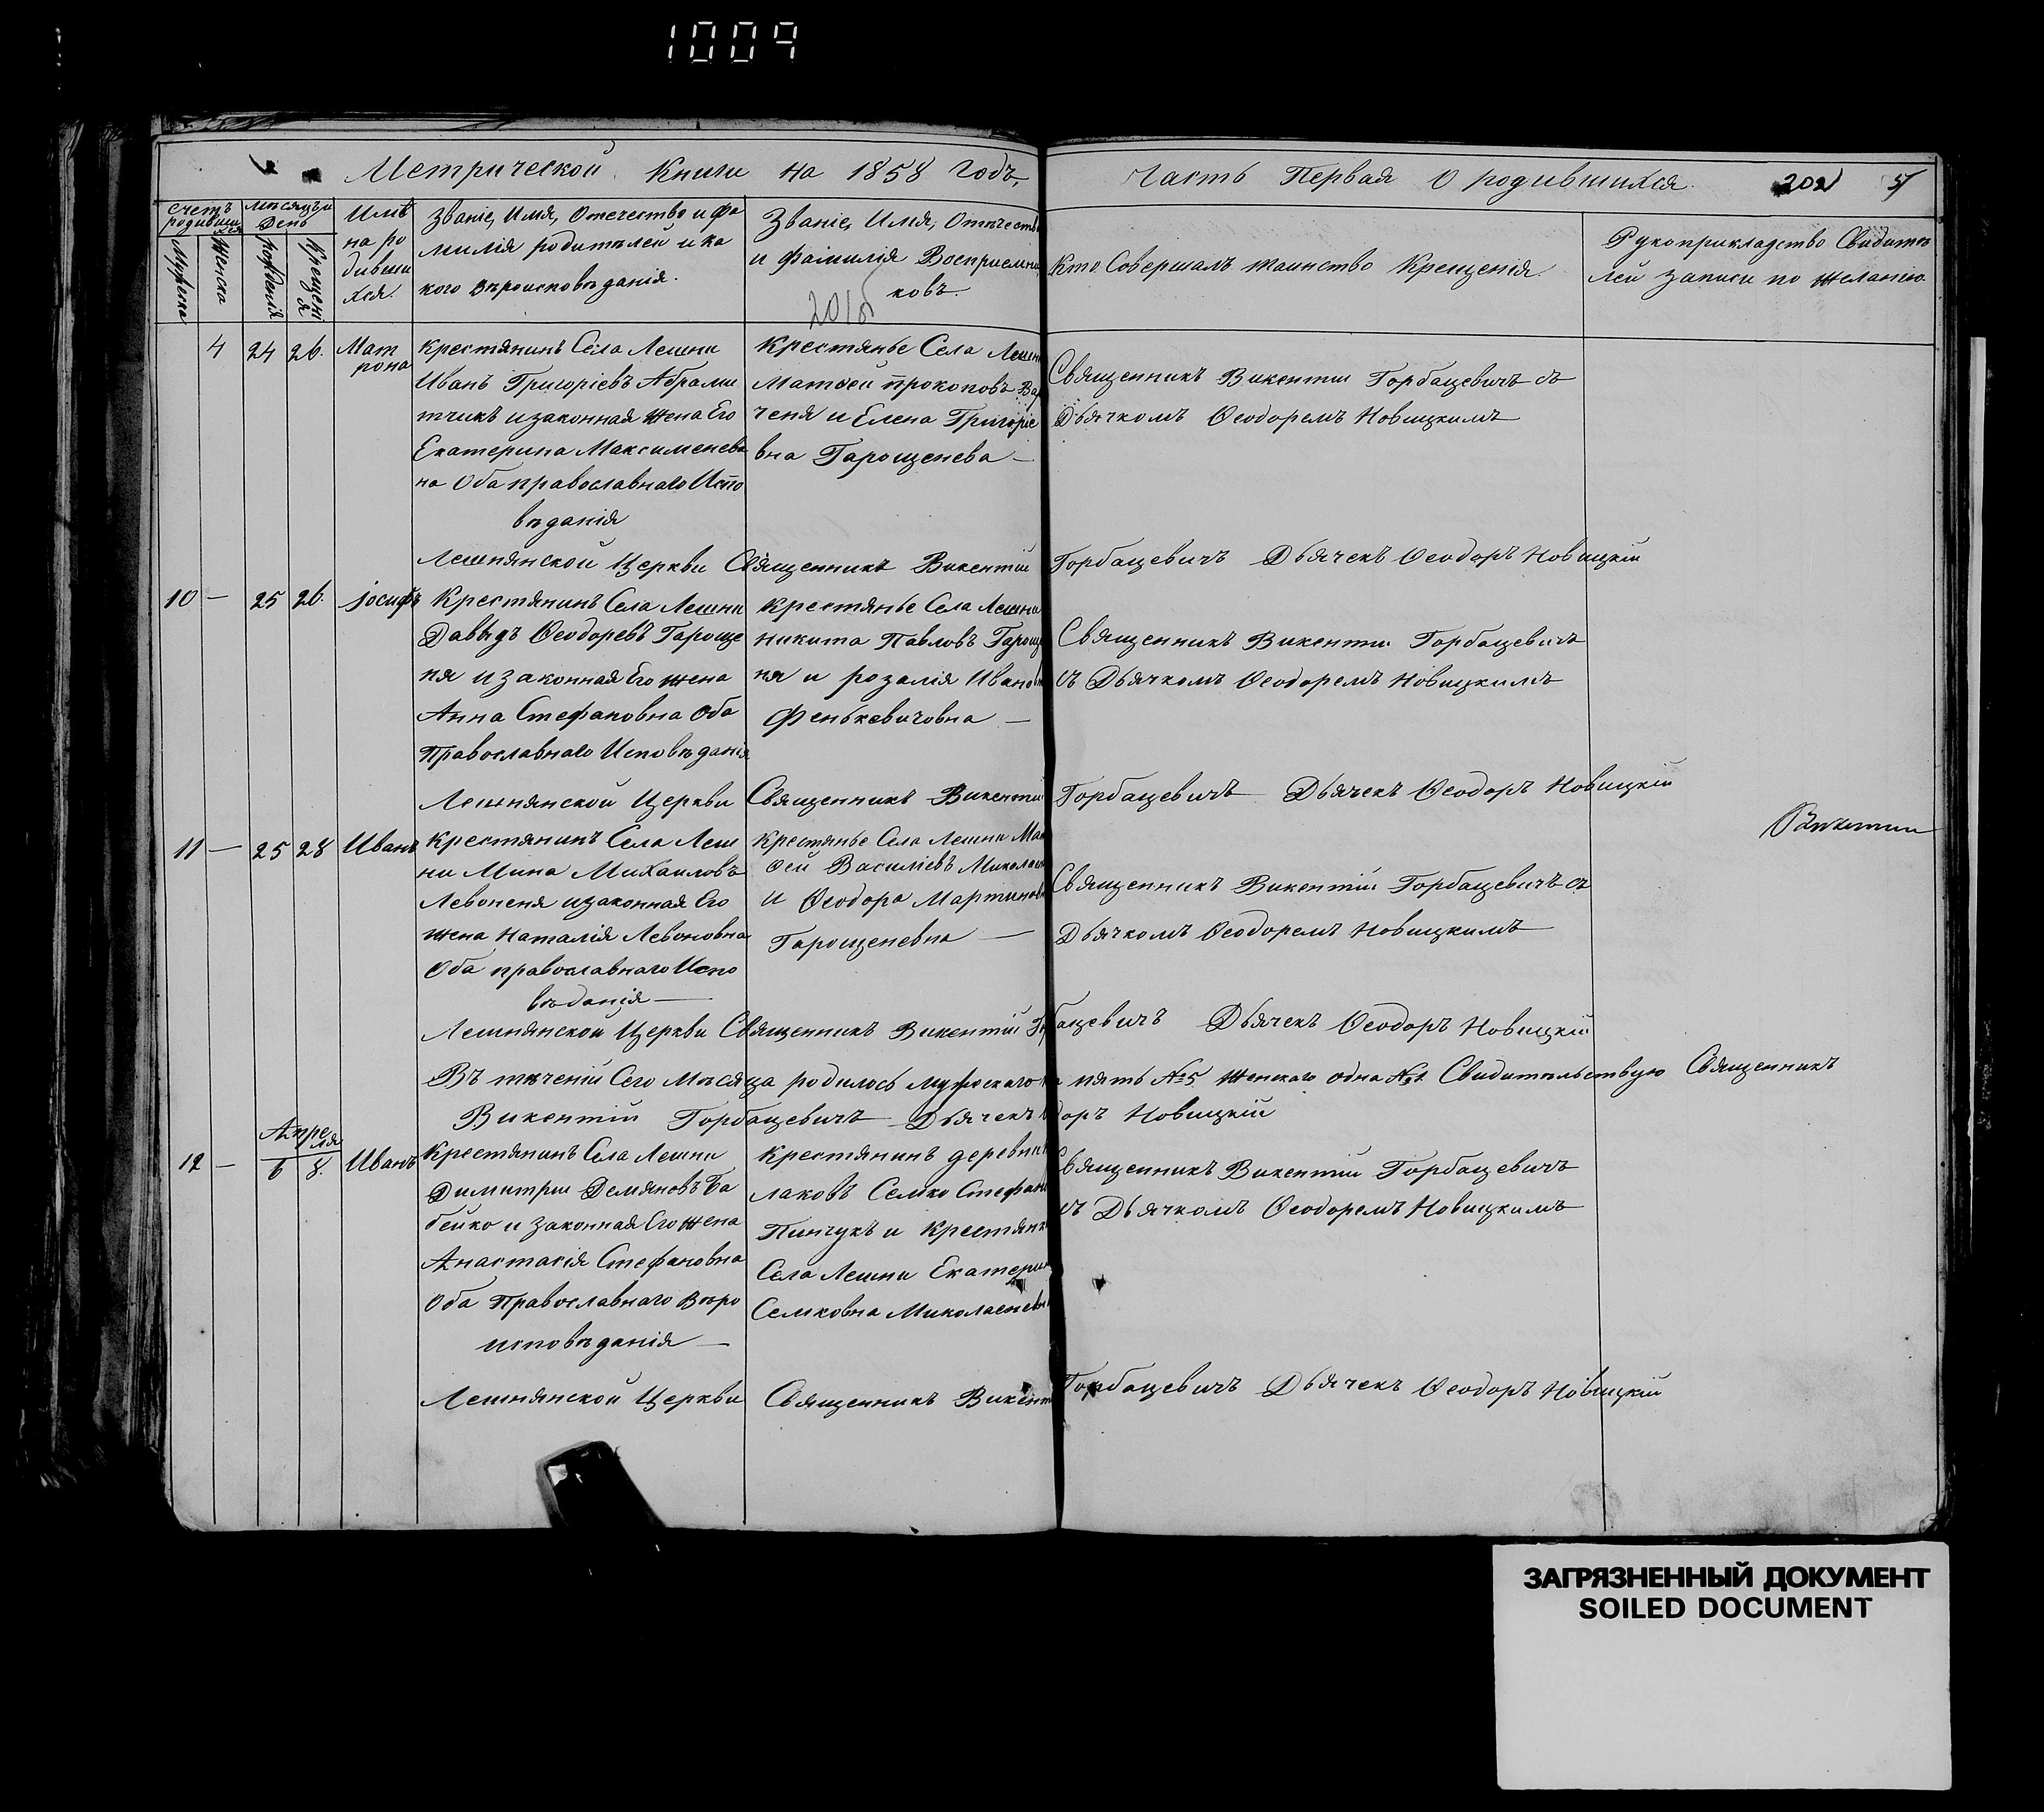 1009
Метрической Книги на 1858 Годъ,
Часть Первая О родившихся. 202 5
Счетъ родивших ся
Мѣсяцъ и День
Имѣ на ро дивши хся.
Званіе, Имя, Отечество и фа милія родитѣлей и ка кого вѣроисповѣданія.
Званіе, Имя, Отѣчеств и Фамилія Восприемни ковъ.
Кто Совершалъ таинство Крещенія
Рукоприкладство Свидитѣ лей записи по желанію.
Мужеска
Женска
рожденія
Крещені я
201об
4 24 26. Мат рона
Крестянинъ Села Лешни
Иванъ Григоріевъ Абрами
тчикъ и законная жена Его
Екатерина Максименев
на Оба православнаго Испо
вѣданія
Крестянье Села Лешн
Матѳей Прокоповъ Вар
ченя и Елена Григоріе
вна Гарощенева —
Священникъ Викентіи Горбацевичъ съ
Дьячкомъ Ѳеодоремъ Новицкимъ
Лешнянской Церкви Священникъ Викентій Горбацевичъ Дьячекъ Ѳеодоръ Новицкій
10 — 25 26. Іосифъ
Крестянинъ Села Лешни
Давыдъ Ѳеодоревъ Гароще
ня и законная Его жена
Анна Стефановна Оба
Православнаго Исповѣданія
Крестянье Села Лешни
Никита Павловъ Гарощ
ня и розалія Ивано
Фенькевичовна —
Священникъ Викентіи Горбацевичъ
съ Дьячкомъ Ѳеодоремъ Новицкимъ
Лешнянской Церкви Священникъ Викентій Горбацевичъ Дьячекъ Ѳеодоръ Новицкій
11 — 25 28 Иванъ
Крестянинъ Села Леш
ни Мина Михаиловъ
Левоненя и законная Его
жена Наталія Левоновна
Оба православнаго Испо
вѣданія —
Крестянье Села Лешни Мат
ѳей Василіевъ Миколае
и Ѳеодора Мартинов
Гарощеневна —
Священникъ Викентій Горбацевичъ съ
Дьячкомъ Ѳеодоремъ Новицкимъ
Викентии
Лешнянской Церкви Священникъ Викентій Гор бацевичъ Дьячекъ Ѳеодоръ Новицкій
Въ тѣченіи Сего Мѣсяца родилось мужескаго пять №5 женскаго одна №1 Свидитѣльствую Священникъ
Викентій Горбацевичъ Дьячекъ доръ Новицкій
Апре ля
12 — 6 8. Иванъ
Крестянинъ Села Лешни
Димитрии Демяновъ Ба
бейко и законная Его жена
Анастасія Стефановна
Оба Православнаго Вѣро
исповѣданія —
Крестянинъ деревни
лаковъ Семко Стефан
Пинчукъ и крестянк
Села Лешни Екатери
Семковна Миколаеневн
Священникъ Викентій Горбацевичъ
съ Дьячкомъ Ѳеодоремъ Новицкимъ
Лешнянской Церкви Священникъ Викент Горбацевичъ Дьячекъ Ѳеодоръ Новицкій
ЗАГРЯЗНЕННЫЙ ДОКУМЕНТ
SOILED DOCUMENT